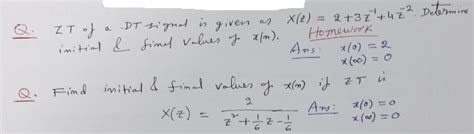 Q. ZT of a DT signal is given as X(z) = 2 + 3z⁻¹ + 4z⁻². Determine
initial & final values of x(n). Homework
Ans: x(0) = 2
x(∞) = 0
Q. Find initial & final values of x(n) if ZT is
X(z) = 2 / (z² + 1/6 z - 1/6) Ans: x(0) = 0
x(∞) = 0